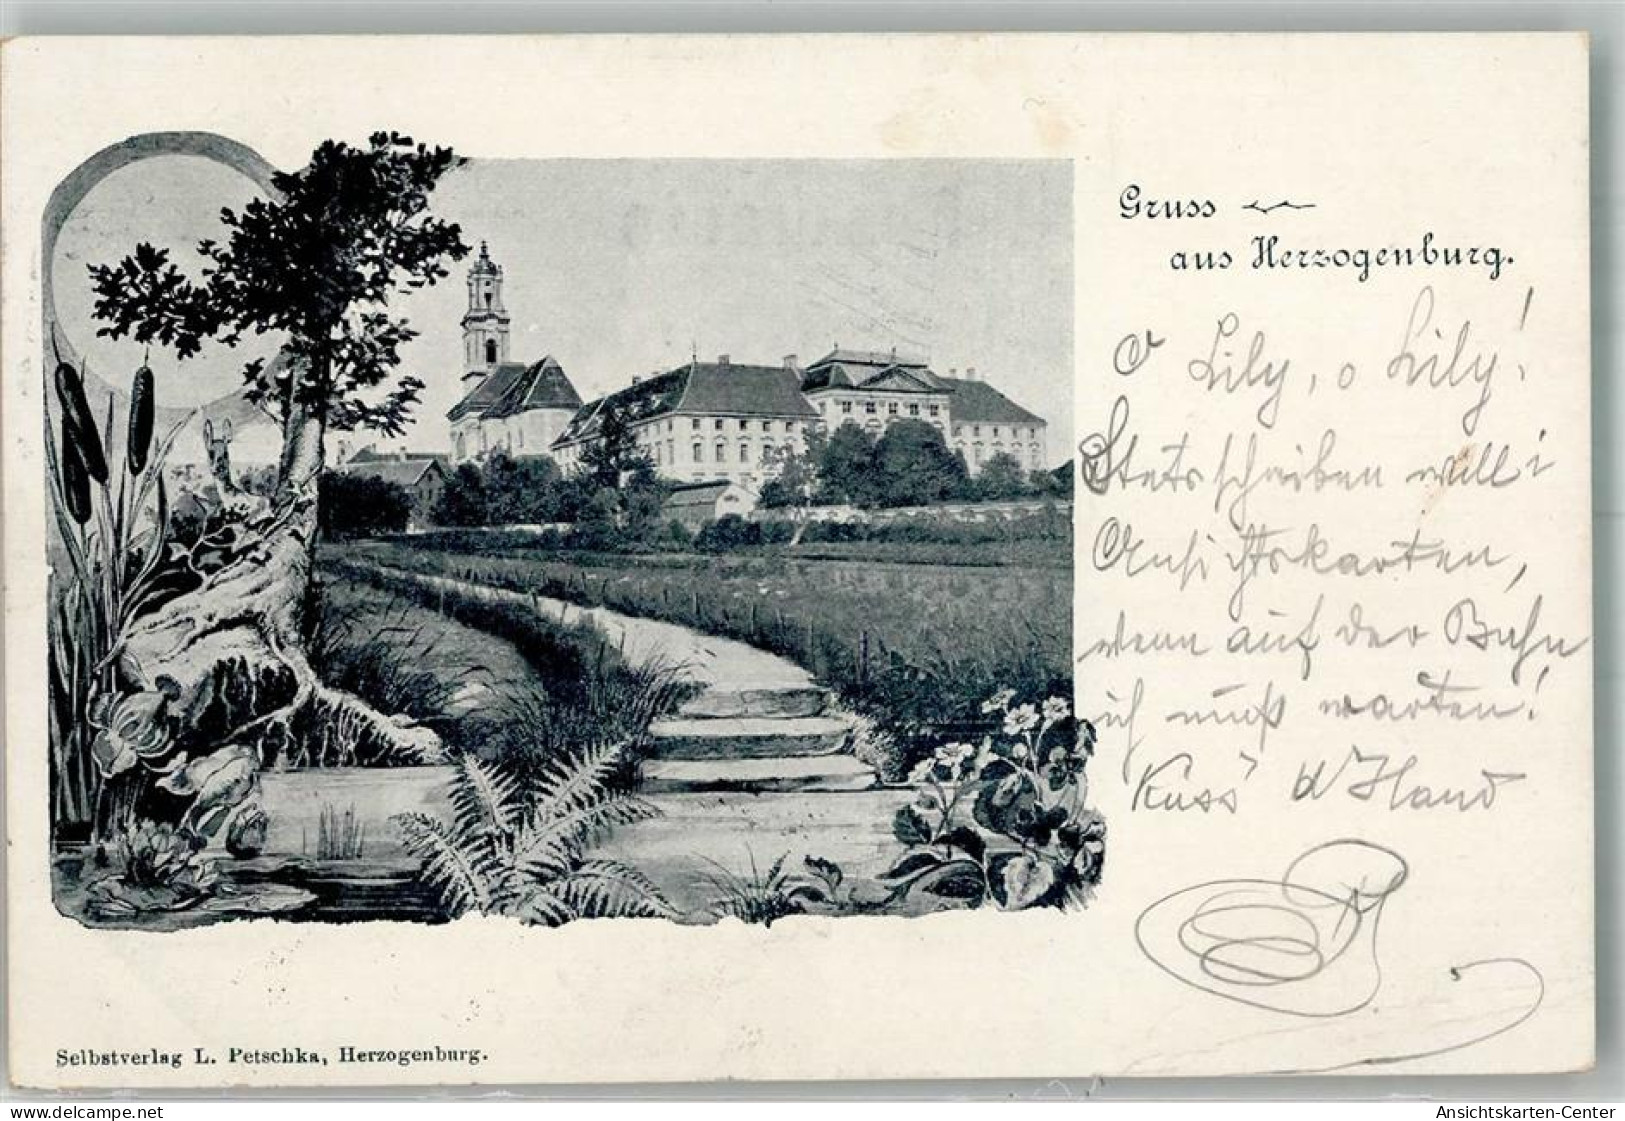 Gruss
aus Herzogenburg.
O Lily, o Lily!
Stets schreiben will i
Ansichtskarten,
wenn auf der Bahn
ich muß warten!
Kuss d' Hand
Selbstverlag L. Petschka, Herzogenburg.
delcampe.net
Ansichtskarten-Center